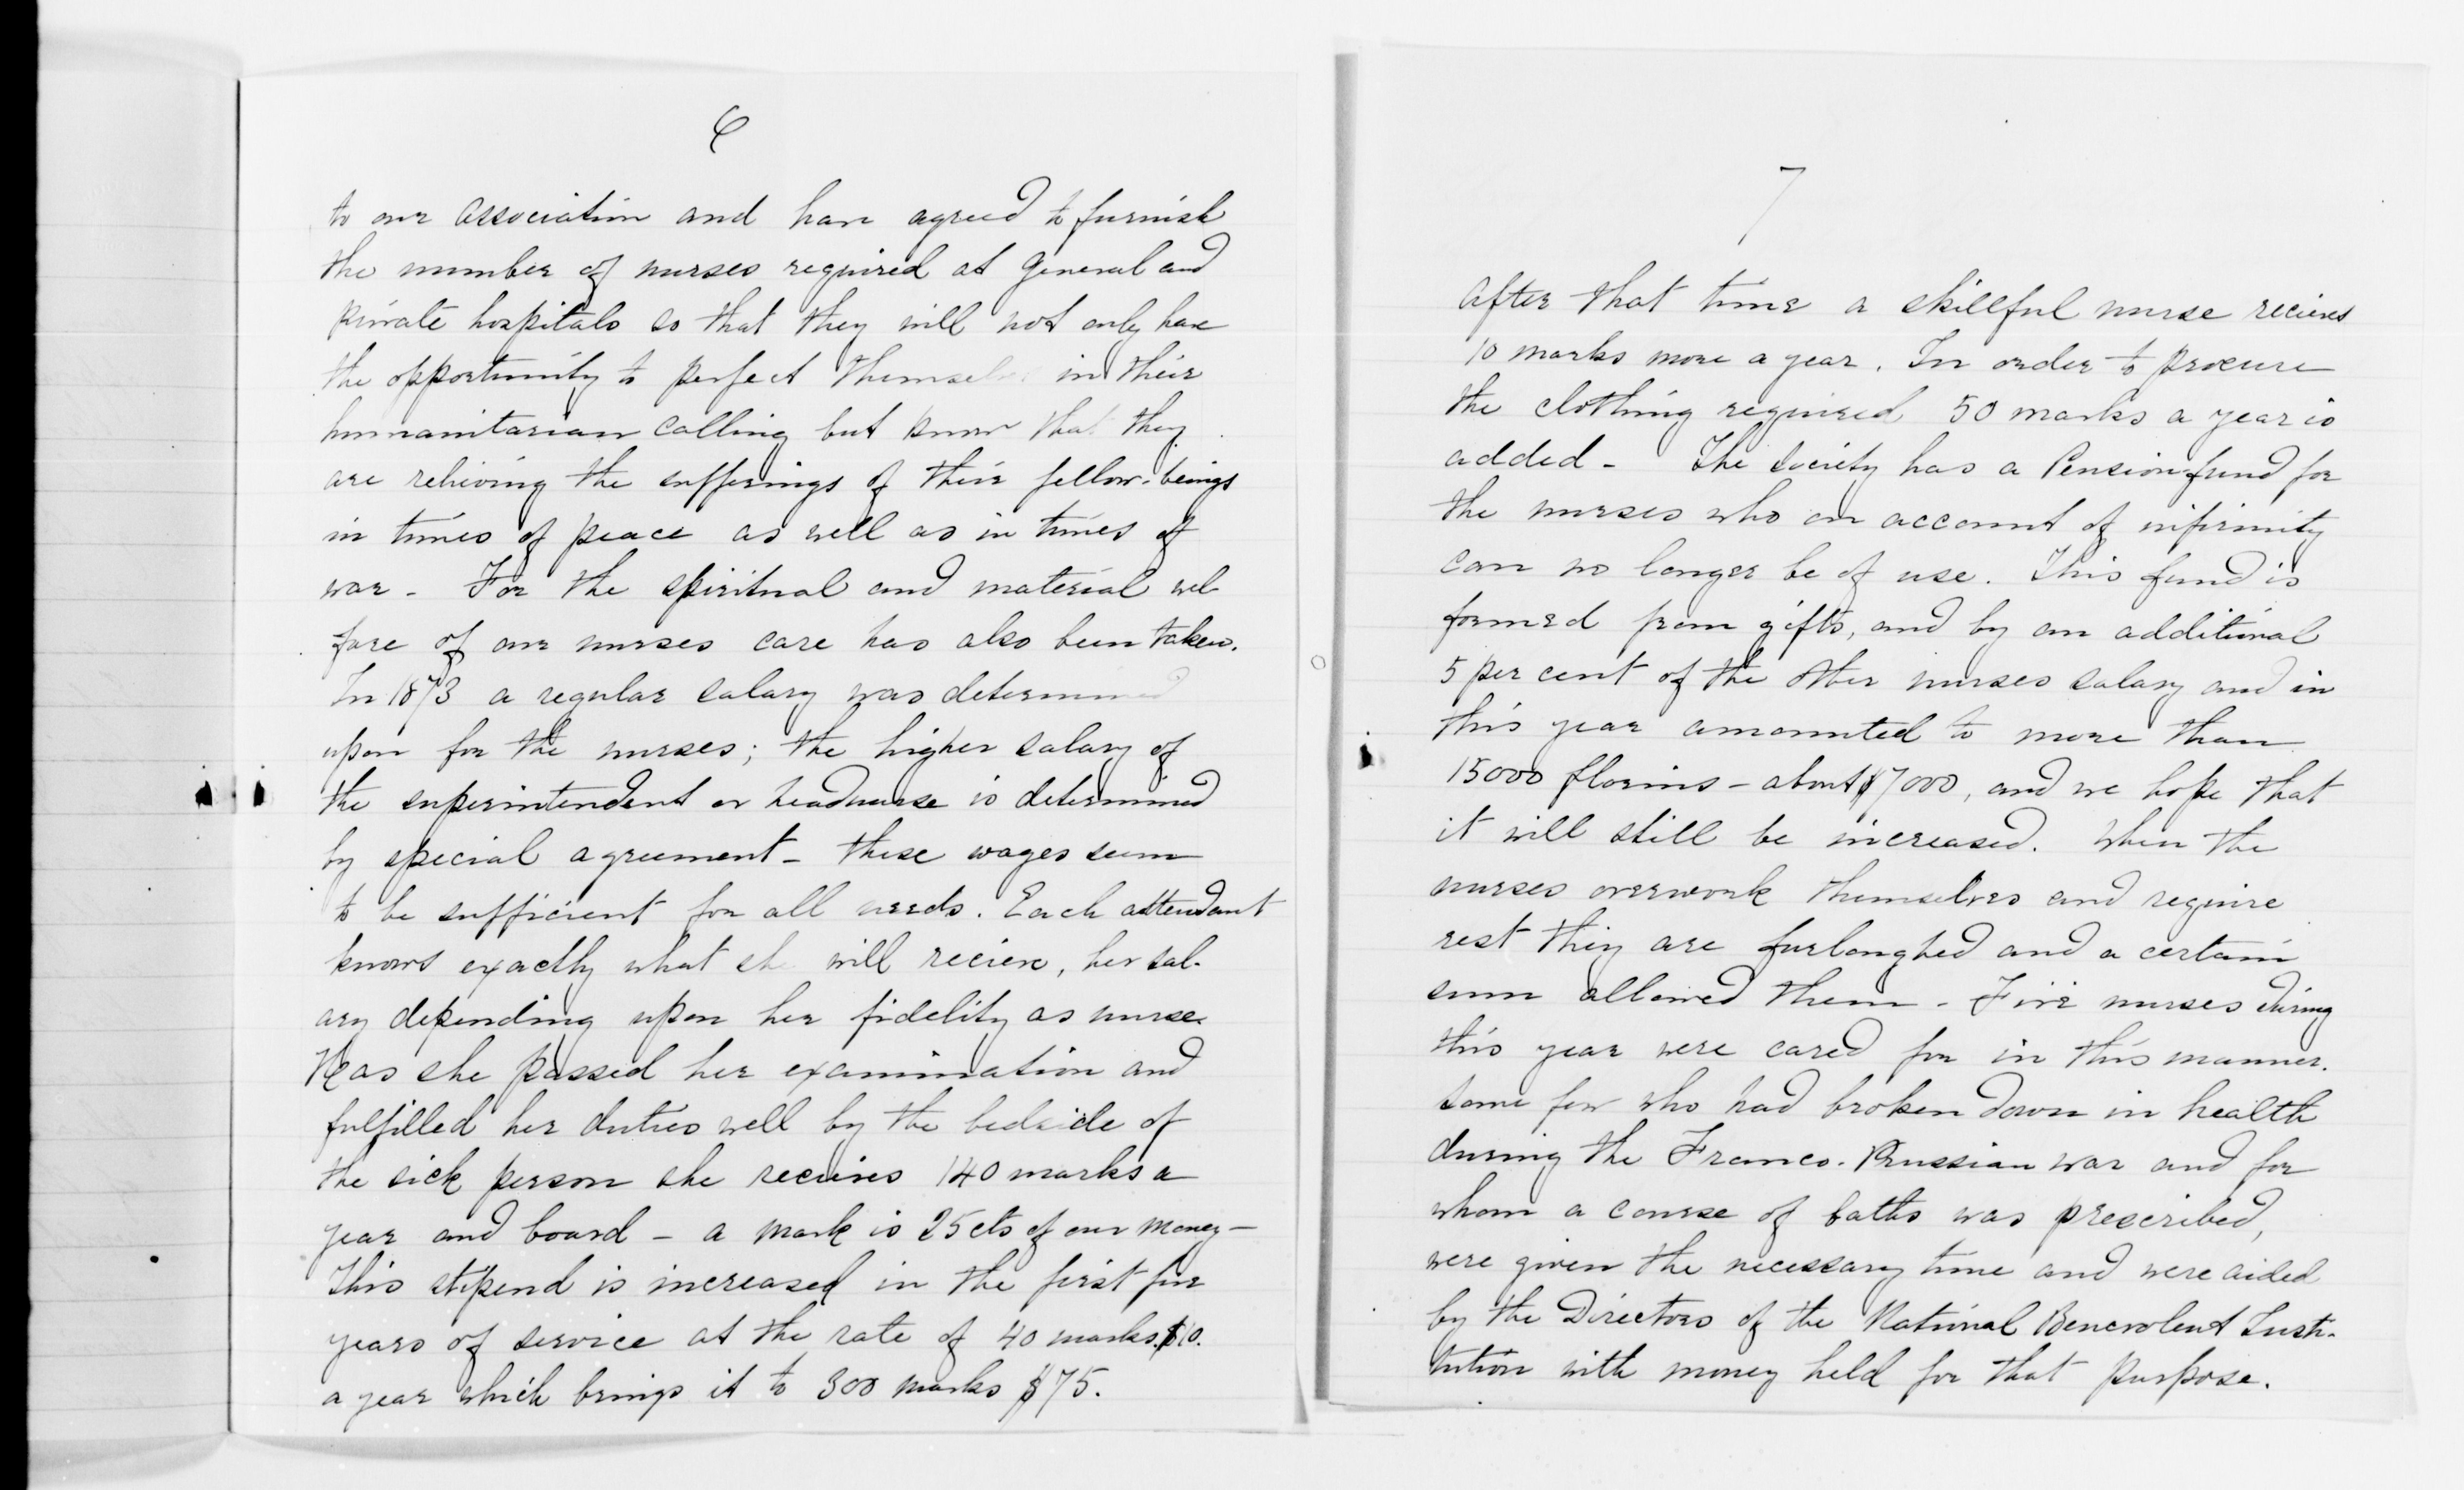 6
to our association and have agreed to furnish
the number of nurses required at General and
private hospitals so that they will not only have
the opportunity to perfect themselves in their
humanitarian calling but know that they
are relieving the sufferings of their fellow-beings
in times of peace as well as in times of
war - For the spiritual and material wel
fare of our nurses care has also been taken.
In 1873 a regular salary was determined
upon for the nurses; the higher salary of
the superintendent or headnurse is determined
by special agreement - these wages seem
to be sufficient for all needs. Each attendant
knows exactly what she will recieve, her sal-
ary depending upon her fidelity as nurse.
Has she passed her examination and
fulfilled her duties well by the bedside of
the sick person she receives 140 marks a
year and board - a mark is 25 cts of our money -
This stipend is increased in the first five
years of service at the rate of 40 marks $10.
a year which brings it to 300 marks $75.
7
After that time a skillful nurse recieves
10 marks more a year. In order to procure
the clothing required 50 marks a year is
added - The Society has a Pension-fund for
the nurses who on account of infirmity
can no longer be of use. This fund is
formed from gifts, and by an additional
5 per cent of the other nurses salary and in
this year amounted to more than
15000 florins - about $7000, and we hope that
it will still be increased. When the
nurses overwork themselves and require
rest they are furloughed and a certain
sum allowed them - Five nurses during
this year were cared for in this manner.
Some few who had broken down in health
during the Franco-Prussian war and for
whom a course of baths was prescribed,
were given the necessary time and were aided
by the Directors of the National Benevolent Insti-
tution with money held for that purpose.